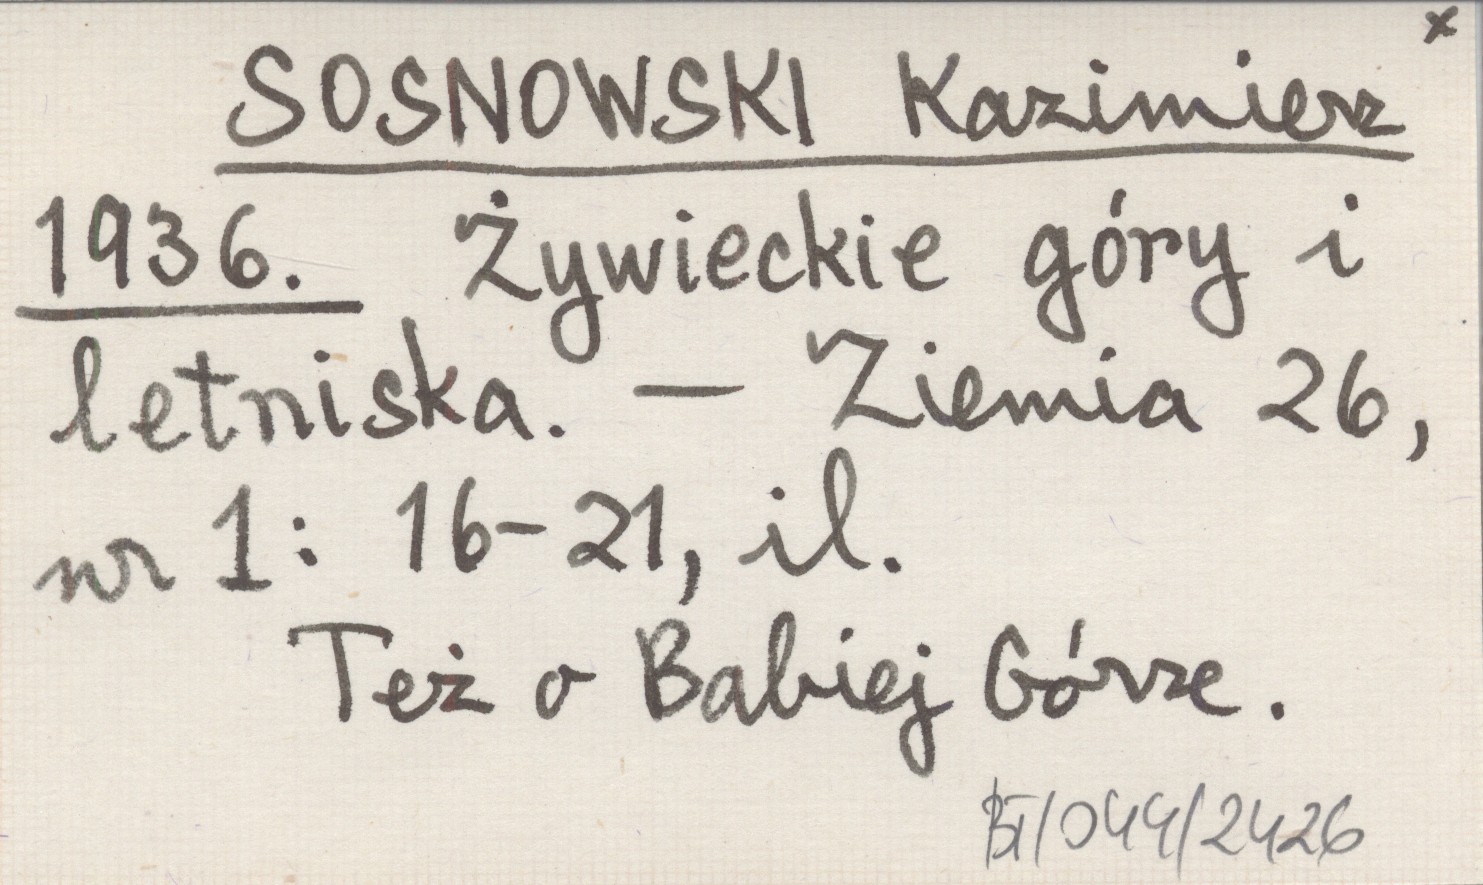 x
SOSNOWSKI Kazimierz
1936. Żywieckie góry i
letniska. — Ziemia 26,
nr 1: 16-21, il.
Też o Babiej Górze.
BT/044/2426